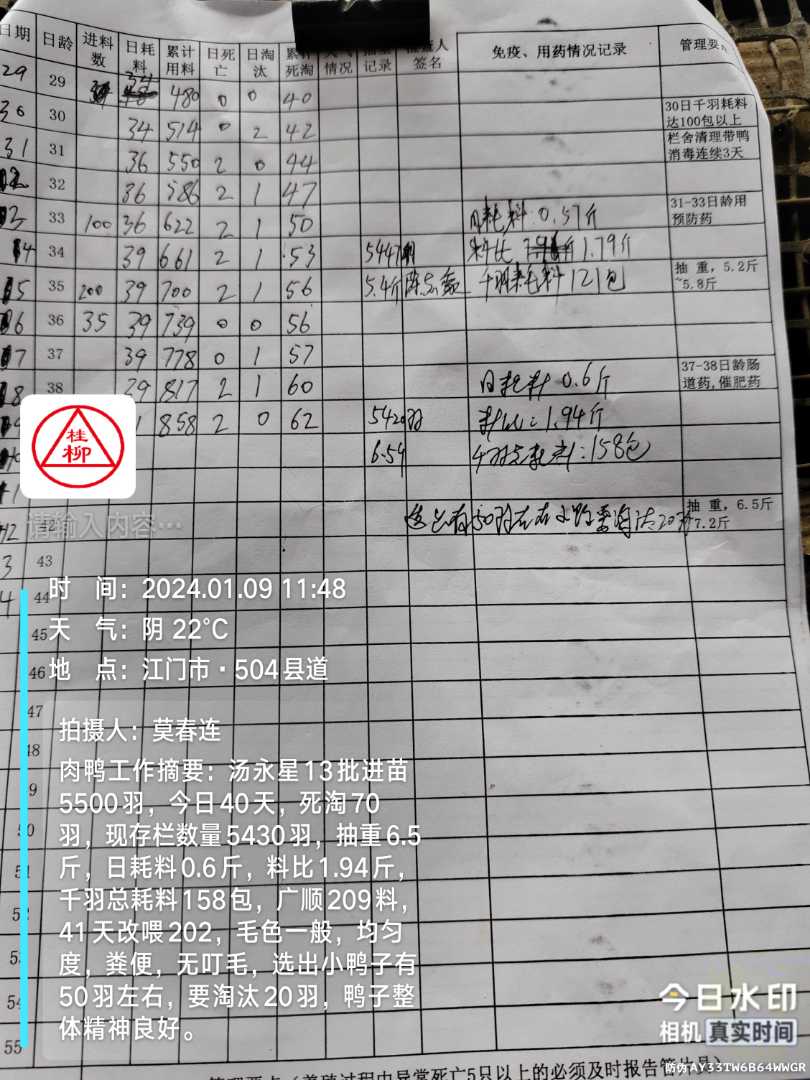 日期 日龄 进料数 日耗料 累计用料 日死亡 日淘汰 累计死淘 情况 记录 签名 免疫、用药情况记录 管理要
29 29 34 480 0 0 40
30 30 34 514 0 2 42 30日千羽耗料达100包以上
31 31 36 550 2 0 44 栏舍清理带鸭消毒连续3天
32 36 586 2 1 47
33 100 36 622 2 1 50 日耗料:0.57斤 31-33日龄用预防药
34 39 661 2 1 53 5447 料比 1.79斤
35 200 39 700 2 1 56 5.4斤 千羽耗料121包 抽重,5.2斤~5.8斤
36 35 39 739 0 0 56
37 39 778 0 1 57
38 39 817 2 1 60 日耗料 0.6斤 37-38日龄肠道药,催肥药
858 2 0 62 5420羽 料比:1.94斤
158包
42 抽重,6.5斤 7.2斤
请输入内容…
43
44
45
46
47
48
49
50
51
52
53
54
55
桂柳
时 间:2024.01.09 11:48
天 气:阴 22℃
地 点:江门市·504县道
拍摄人:莫春连
肉鸭工作摘要:汤永星13批进苗
5500羽,今日40天,死淘70
羽,现存栏数量5430羽,抽重6.5
斤,日耗料0.6斤,料比1.94斤,
千羽总耗料158包,广顺209料,
41天改喂202,毛色一般,均匀
度,粪便,无叮毛,选出小鸭子有
50羽左右,要淘汰20羽,鸭子整
体精神良好。
今日水印
相机 真实时间
防伪 AY33TW6B64WWGR